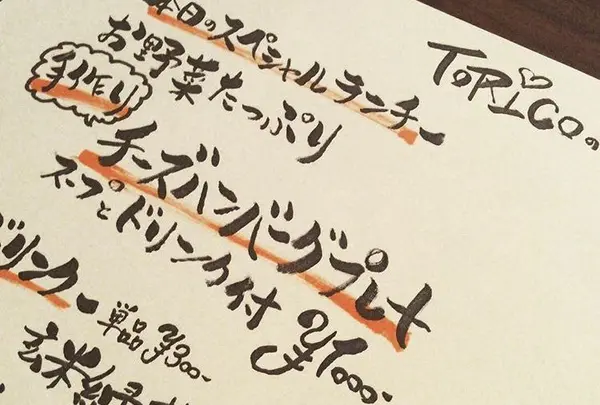 TORICOの
本日のスペシャルランチー
お野菜たっぷり
手作り
チーズハンバーグプレート
スープとドリンク付 ¥1000-
ドリンクー
単品 ¥300-
玄米緑